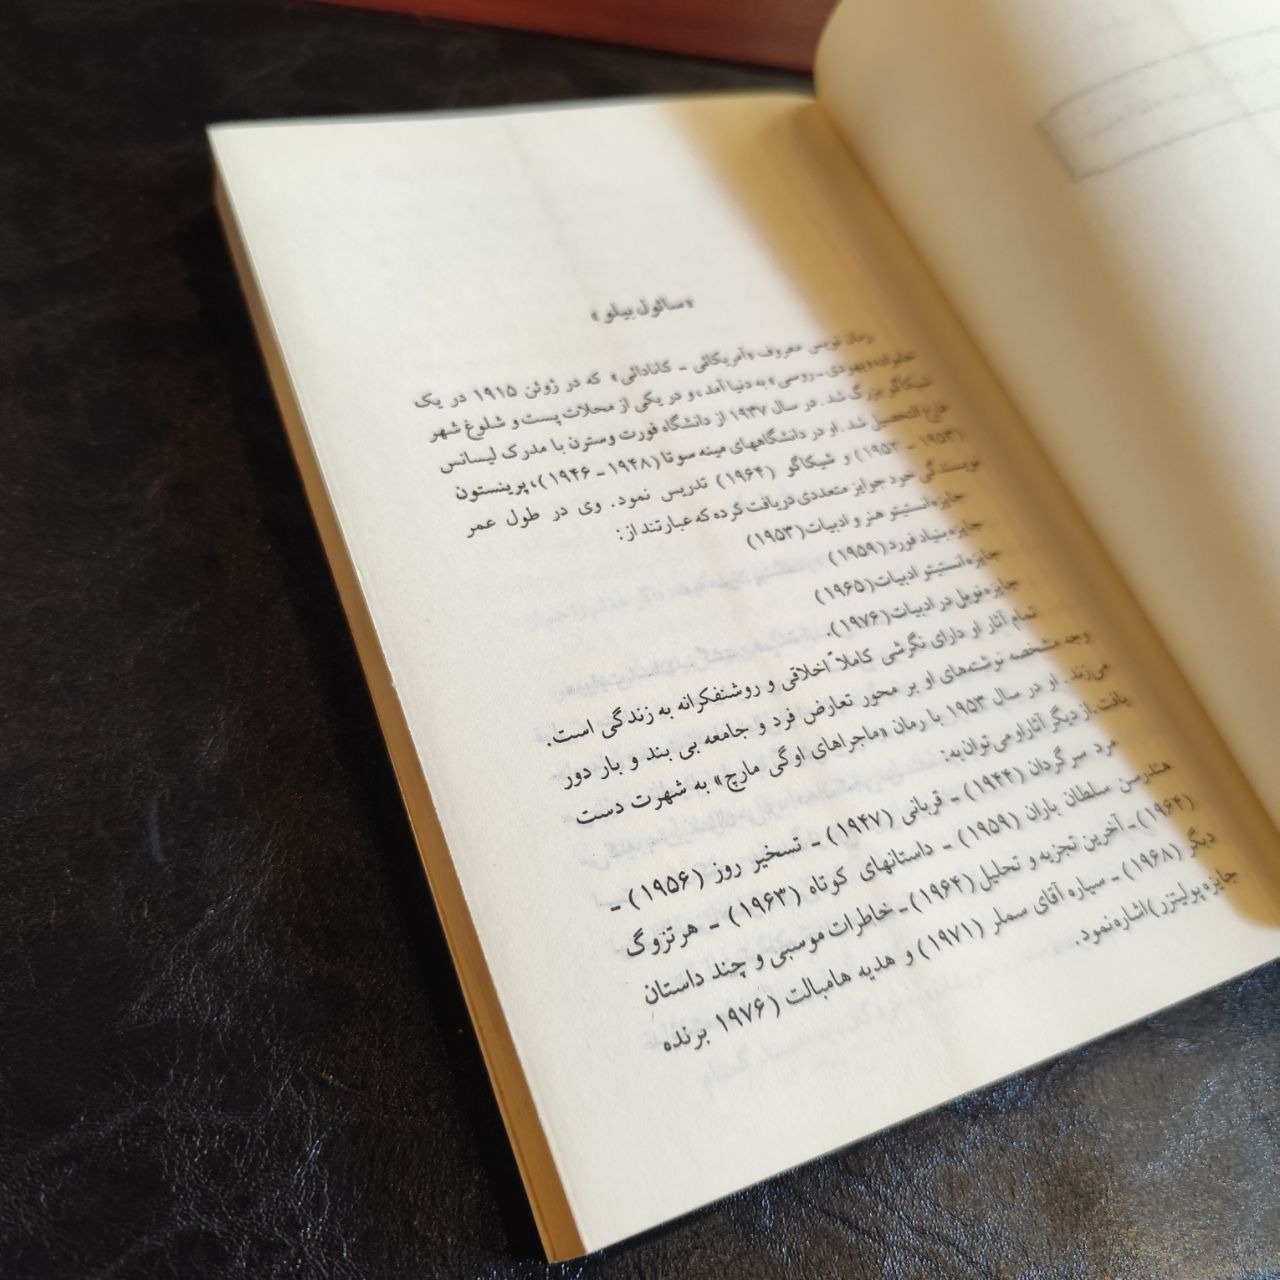 «سائول بیلو»
رمان نویس معروف «آمریکائی ـ کانادائی» که در ژوئن ۱۹۱۵ در یک
خانواده «یهودی ـ روسی» به دنیا آمد، و در یکی از محلات پست و شلوغ شهر
شیکاگو بزرگ شد. در سال ۱۹۳۷ از دانشگاه فورت وسترن با مدرک لیسانس
فارغ التحصیل شد. او در دانشگاههای مینه سوتا (۱۹۴۸ ـ ۱۹۴۶)، پرینستون
(۱۹۵۳ ـ ۱۹۵۲) و شیکاگو (۱۹۶۴) تدریس نمود. وی در طول عمر
نویسندگی خود جوایز متعددی دریافت کرده که عبارتند از:
جایزه انستیتو هنر و ادبیات (۱۹۵۳)
جایزه بنیاد فورد (۱۹۵۹)
جایزه انستیتو ادبیات (۱۹۶۵)
جایزه نوبل در ادبیات (۱۹۷۶).
تمام آثار او دارای نگرشی کاملاً اخلاقی و روشنفکرانه به زندگی است.
وجه مشخصه نوشته‌های او بر محور تعارض فرد و جامعه بی بند و بار دور
می‌زند. او در سال ۱۹۵۳ با رمان «ماجراهای اوگی مارچ» به شهرت دست
یافت. از دیگر آثار او می‌توان به:
مرد سرگردان (۱۹۴۴) ـ قربانی (۱۹۴۷) ـ تسخیر روز (۱۹۵۶) ـ
هندرسن سلطان باران (۱۹۵۹) ـ داستانهای کوتاه (۱۹۶۳) ـ هرتزوگ
(۱۹۶۴) ـ آخرین تجزیه و تحلیل (۱۹۶۴) ـ خاطرات موسبی و چند داستان
دیگر (۱۹۶۸) ـ سیاره آقای سملر (۱۹۷۱) و هدیه هامبالت (۱۹۷۶ برنده
جایزه پولیتزر) اشاره نمود.